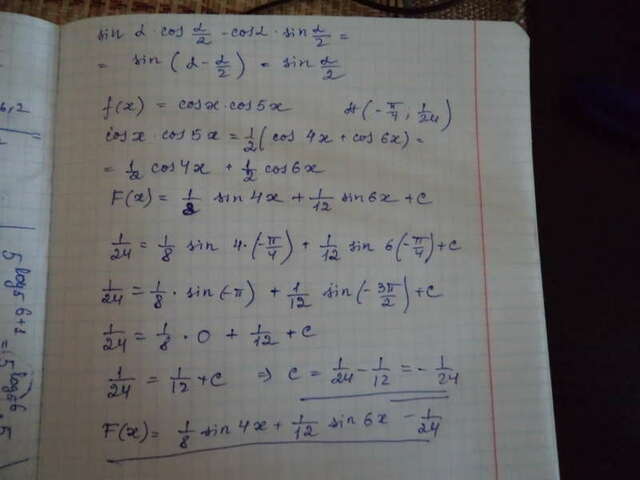 sin α · cos α/2 - cosα · sin α/2 =
= sin (α - α/2) = sin α/2
f(x) = cosx · cos5x A(-π/4 ; 1/24)
cosx · cos5x = 1/2 (cos 4x + cos 6x) =
= 1/2 cos4x + 1/2 cos6x
F(x) = 1/8 sin 4x + 1/12 sin6x + C
1/24 = 1/8 sin 4·(-π/4) + 1/12 sin 6(-π/4) + C
1/24 = 1/8 · sin(-π) + 1/12 sin(-3π/2) + C
1/24 = 1/8 · 0 + 1/12 + C
1/24 = 1/12 + C ⇒ C = 1/24 - 1/12 = - 1/24
F(x) = 1/8 sin 4x + 1/12 sin 6x - 1/24